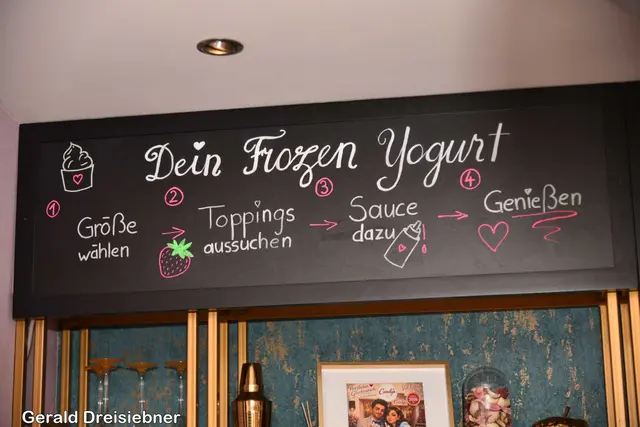 Dein Frozen Yogurt
① Größe wählen
② Toppings aussuchen
③ Sauce dazu
④ Genießen
Gerald Dreisiebner